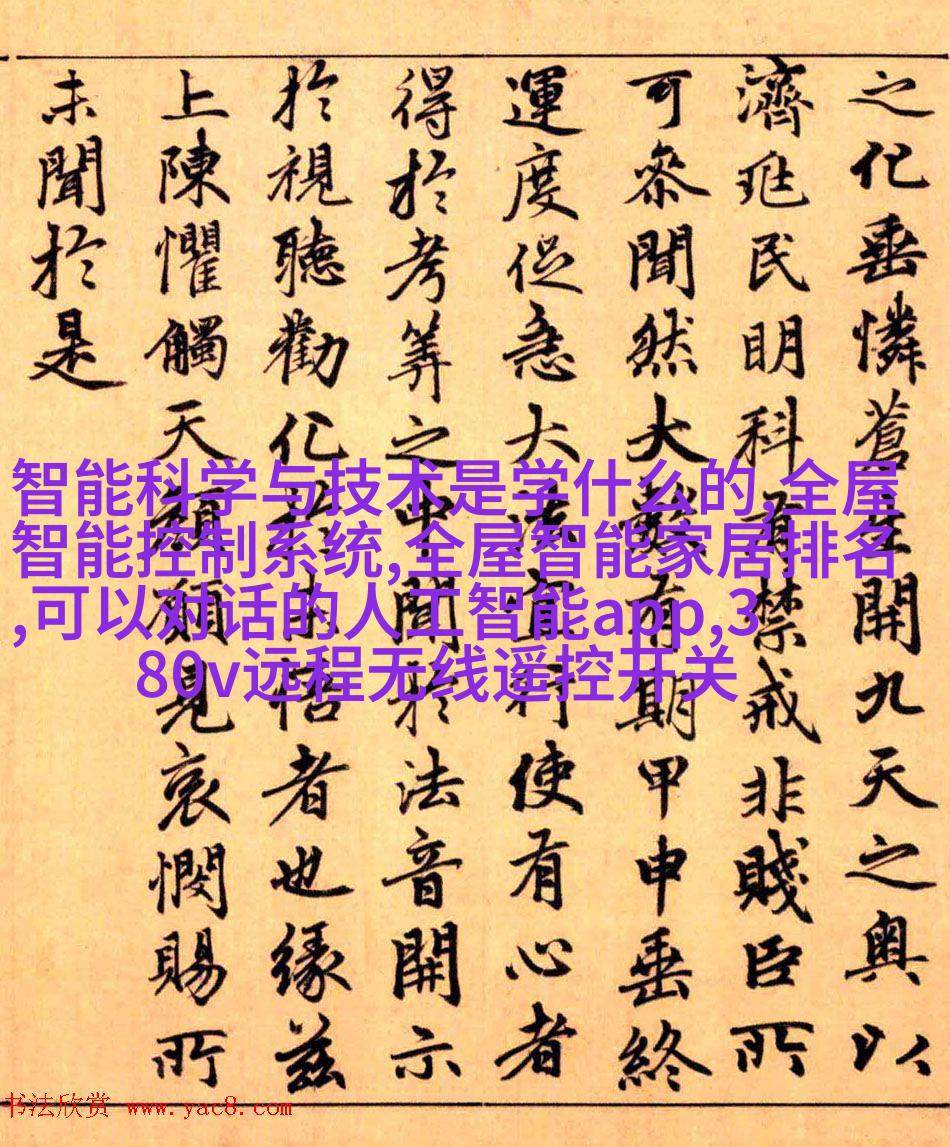 之化垂憐蒼生開九天之奥以
濟兆民明科有禁戒非賤臣所
可叅聞然大數有期甲申垂終
運度促急大法宜行使有心者
得於考筭之中聞於法音開示
於視聽勸化悟者也緣兹
上陳懼觸天顔願見哀憫賜所
未聞於是
智能科学与技术是学什么的,全屋
智能控制系统,全屋智能家居排名
,可以对话的人工智能app,3
80v远程无线遥控开关
书法欣赏 www.yac8.com